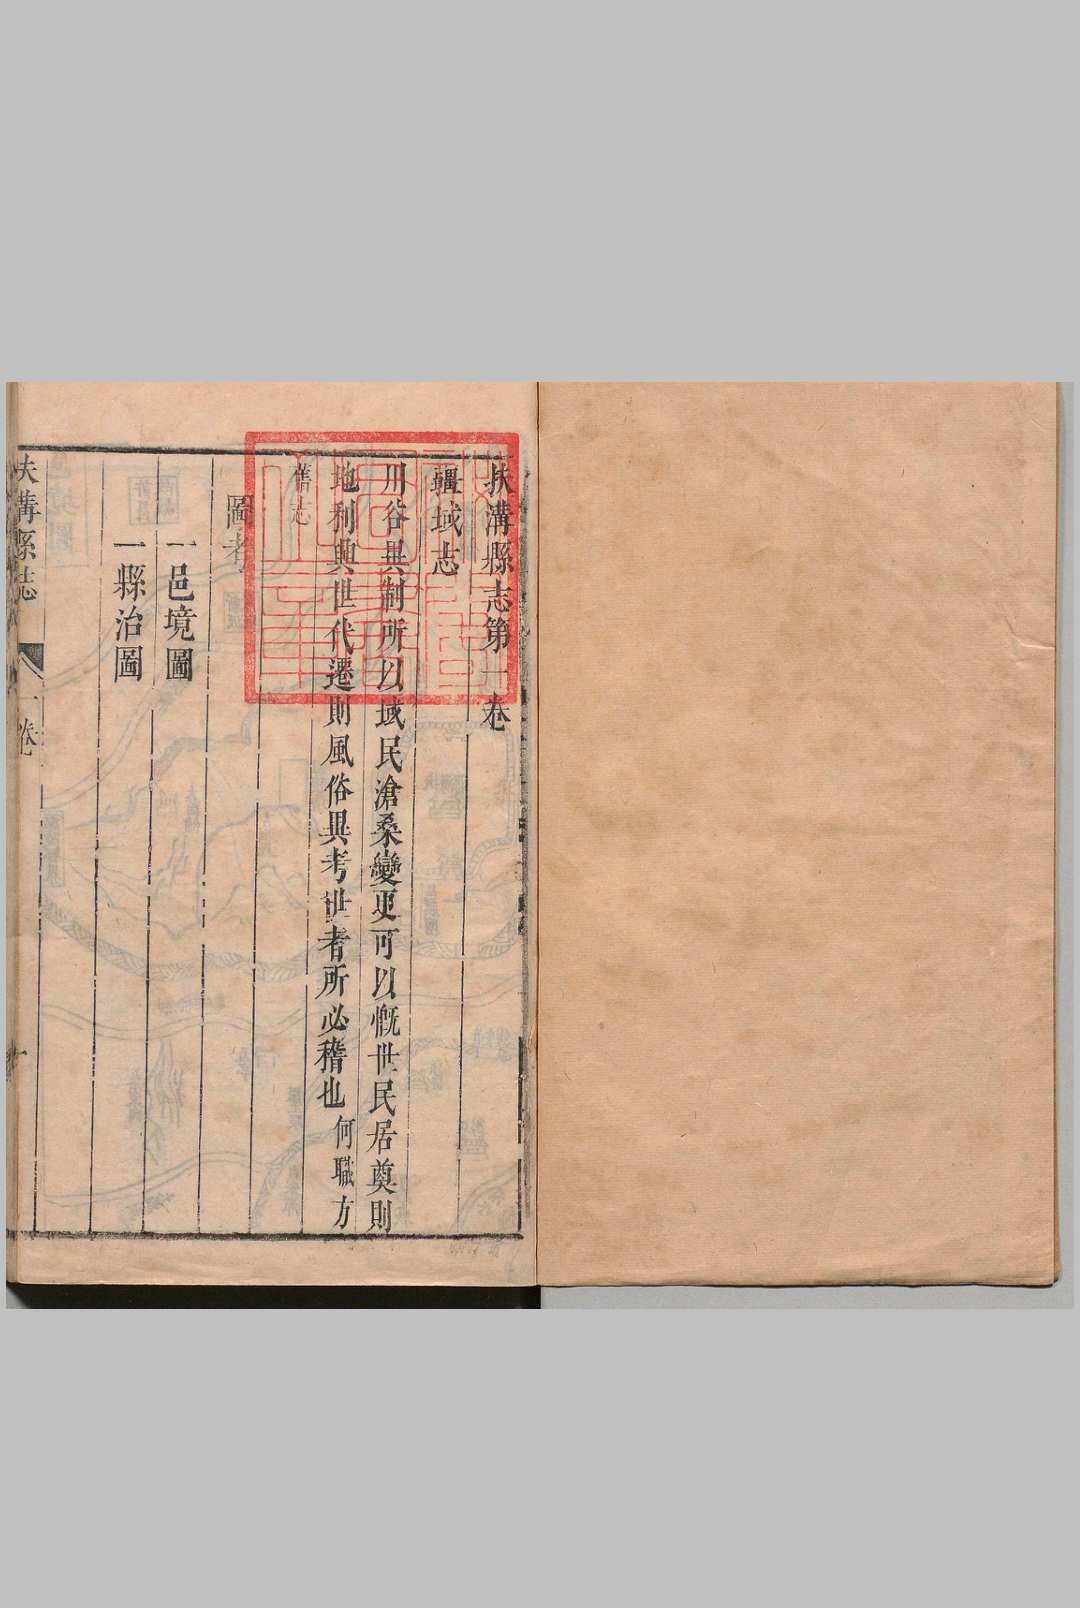 扶溝縣志第一卷
疆域志
川谷異制所以域民滄桑變更可以慨世民居奠則
地利興世代遷則風俗異考世者所必稽也何職方
舊志
圖考
一邑境圖
一縣治圖
扶溝縣志
一卷